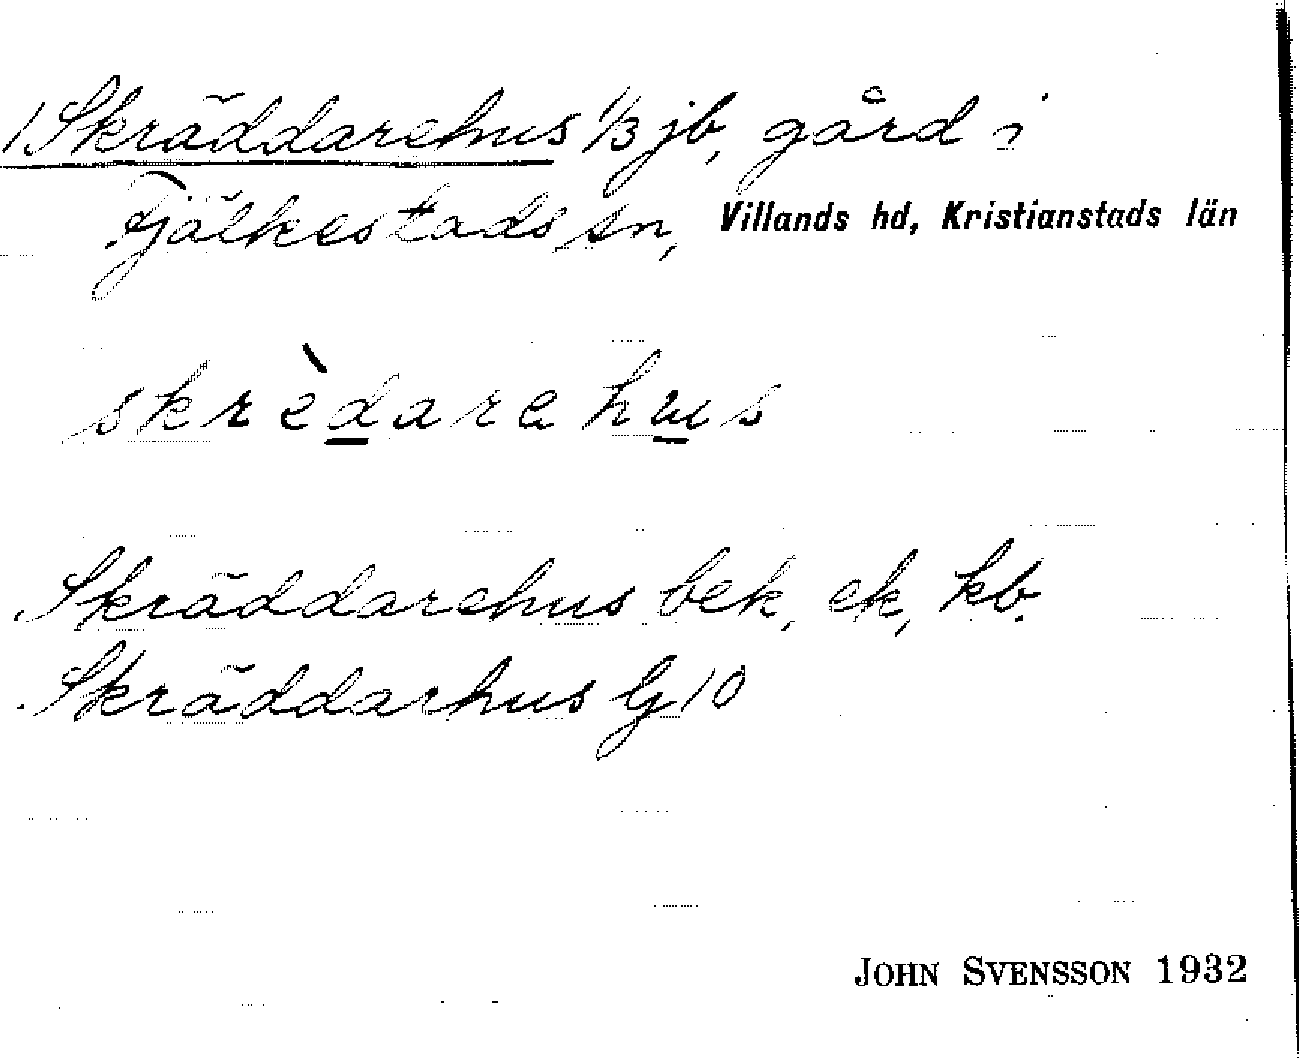 1 Skräddarehus 1/3 jb, gård i
Fjälkestads sn, Villands hd, Kristianstads län
skrèdarehus
Skräddarehus bek, ek, kb.
Skräddarhus Gj 10
JOHN SVENSSON 1932